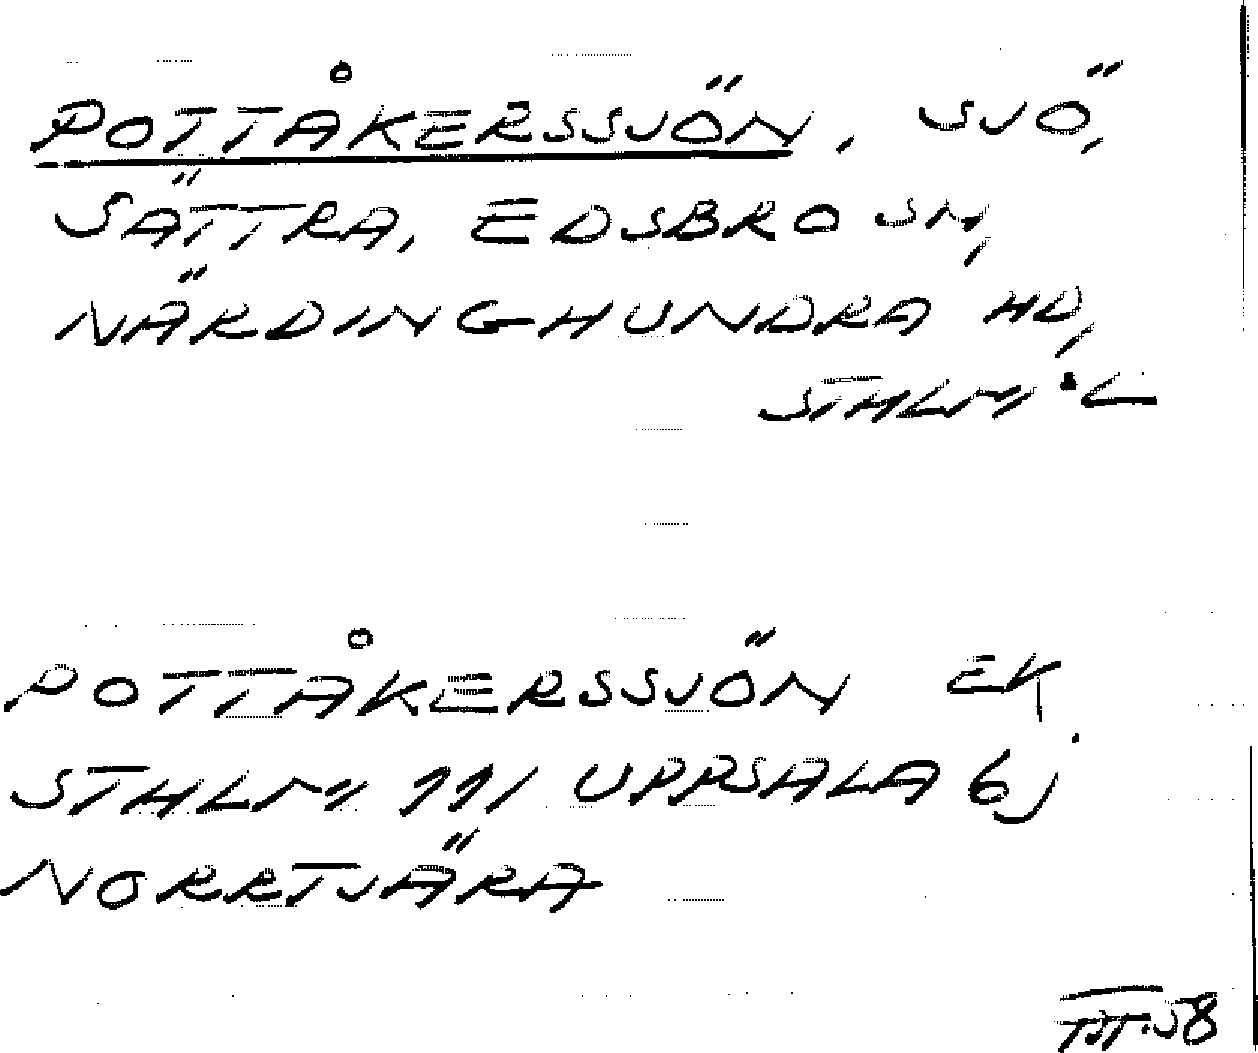 POTTÅKERSSJÖN, SJÖ,
SÄTTRA, EDSBRO SN,
NÄRDINGHUNDRA HD,
STHLMS L
POTTÅKERSSJÖN EK
STHLM 111 UPPSALA 6j
NORRTJÄRA